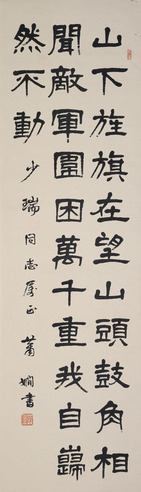 山下旌旗在望山頭鼓角相
聞敵軍圍困萬千重我自巋
然不動 少瑞同志属正 蕭嫻書